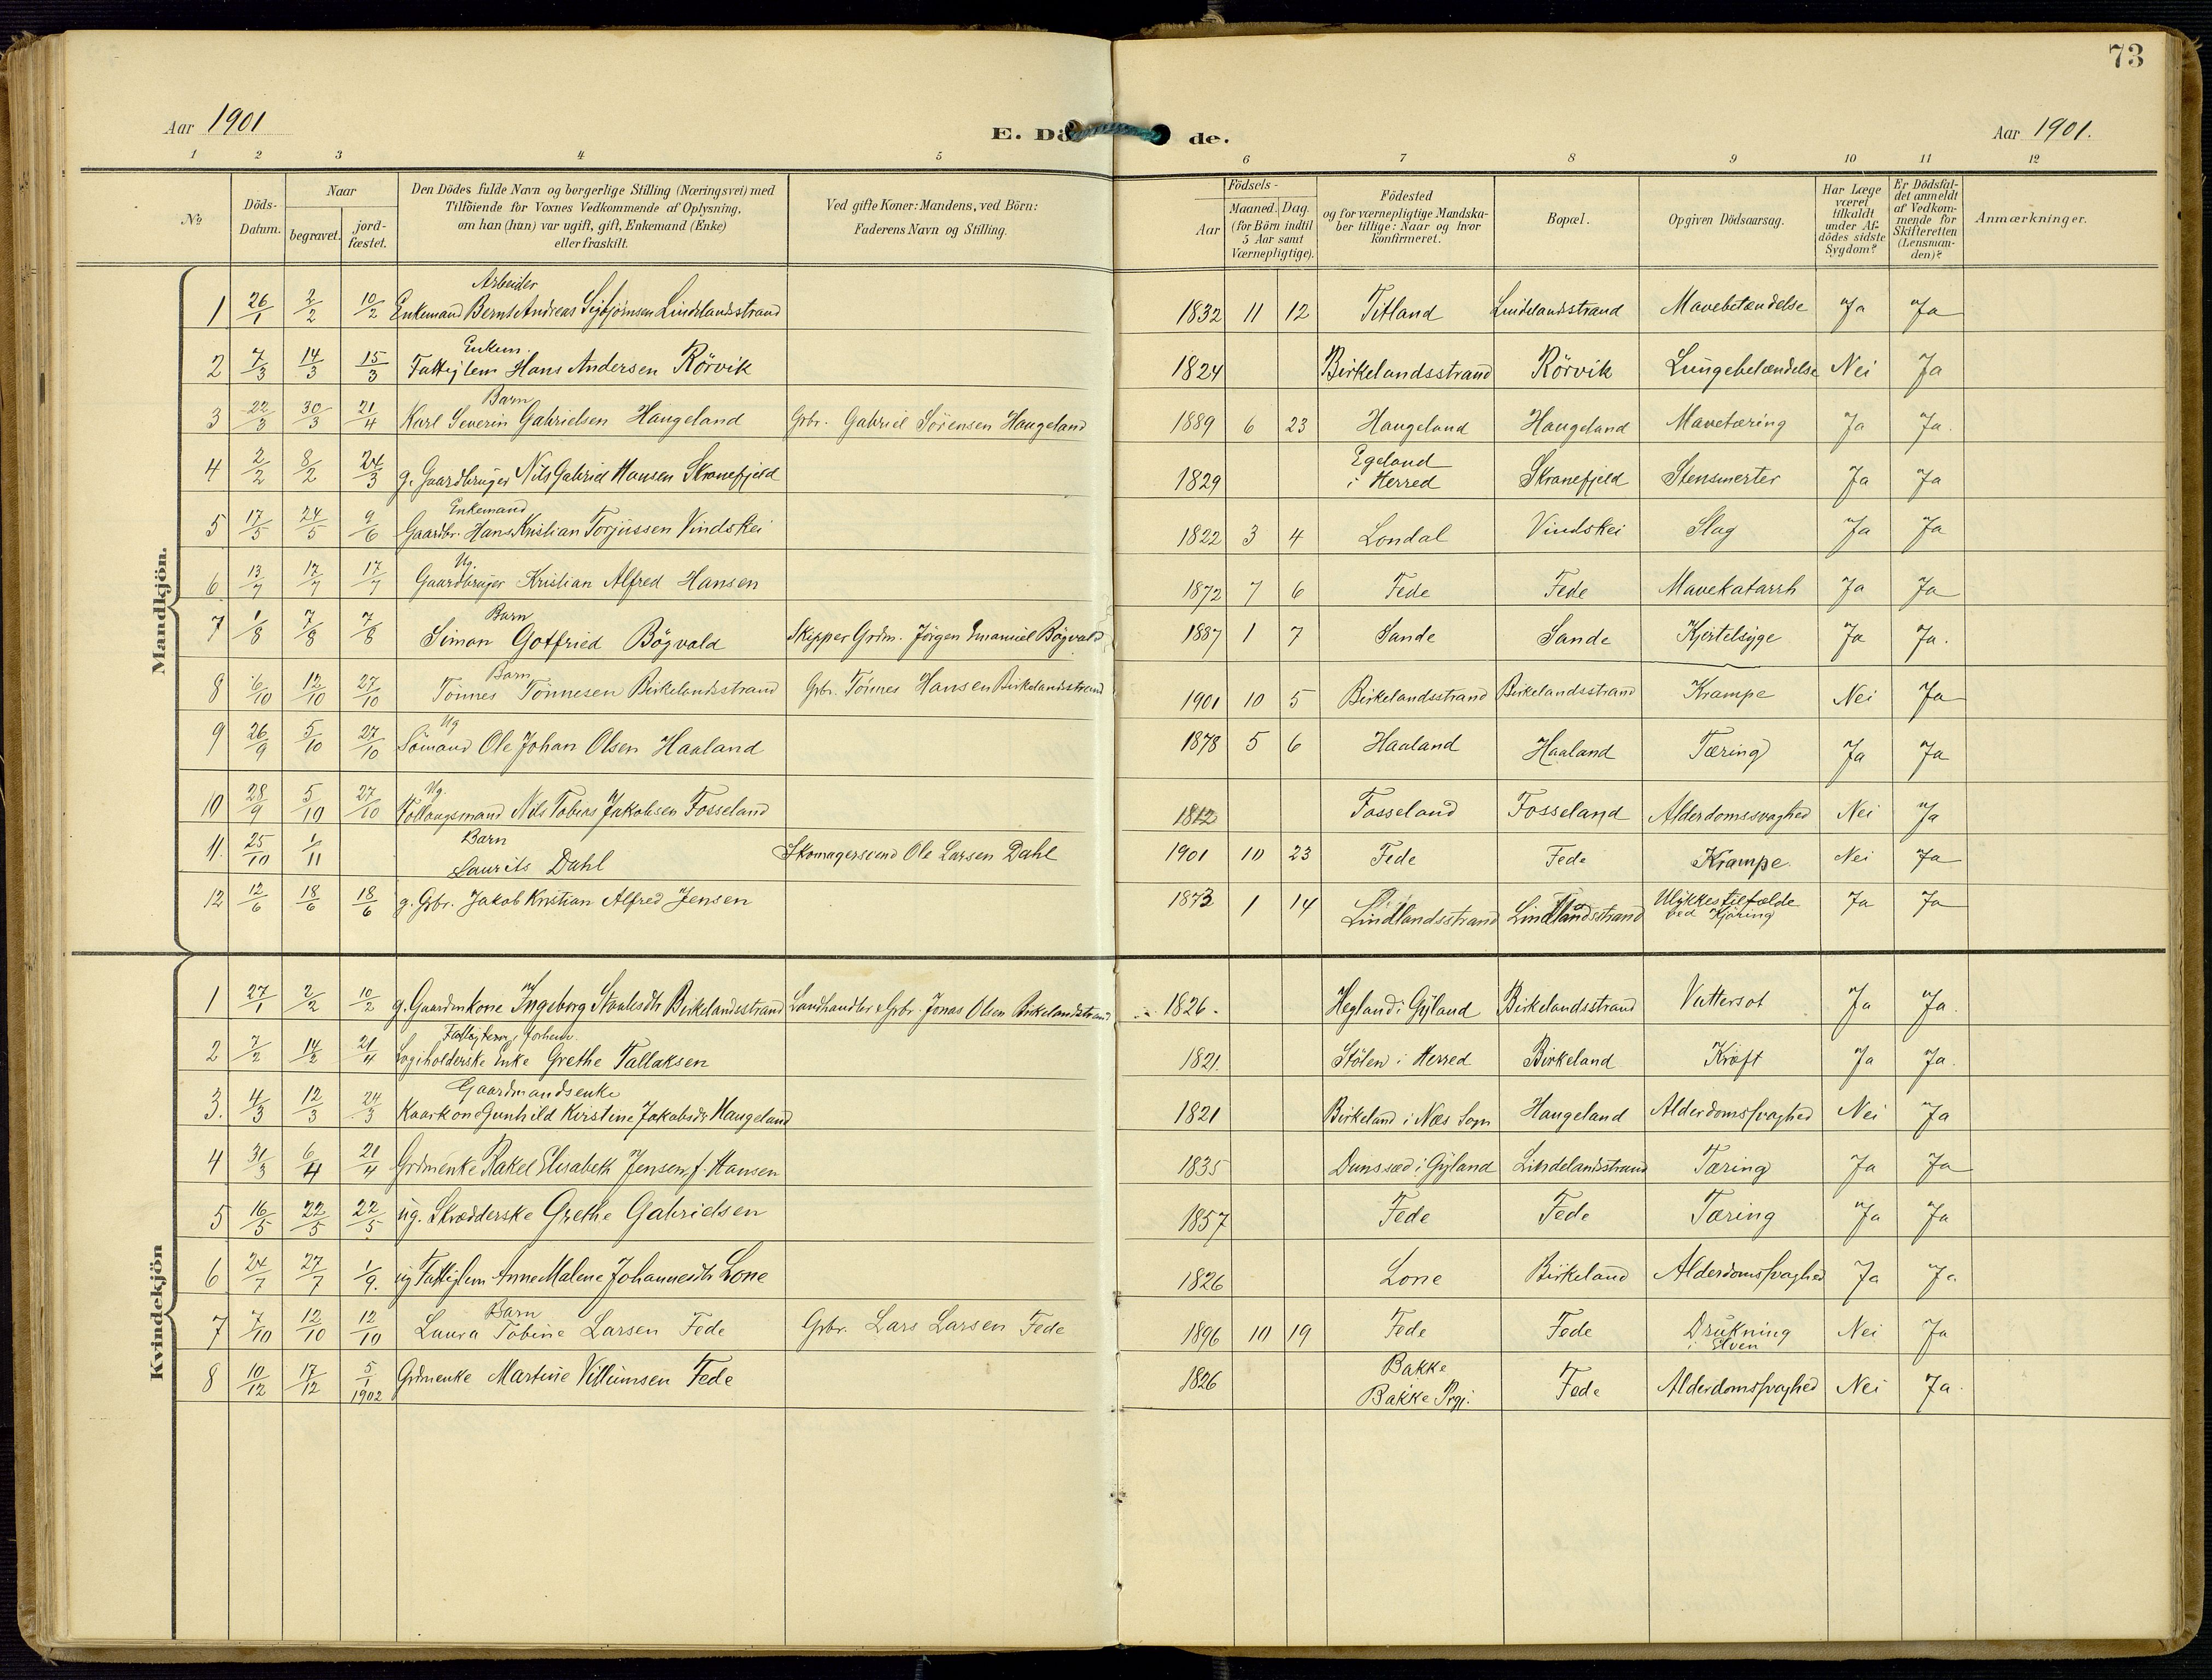 73
Aar 1901
E. Dö de.
Aar 1901.
1 2 3 4 5 6 7 8 9 10 11 12
№
Döds-Datum.
Naar
begravet.
jord-fæstet.
Den Dödes fulde Navn og borgerlige Stilling (Næringsvei) med
Tilföiende for Voxnes Vedkommende af Oplysning,
om han (hun) var ugift, gift, Enkemand (Enke)
eller fraskilt.
Ved gifte Koner: Mandens, ved Börn:
Faderens Navn og Stilling.
Födsels-
Aar
Maaned. Dag.
(for Börn indtil
5 Aar samt
Værnepligtige).
Födested
og for værnepligtige Mandska-
ber tillige: Naar og hvor
konfirmeret.
Bopæl.
Opgiven Dödsaarsag.
Har Læge
været
tilkaldt
under Af-
dödes sidste
Sygdom?
Er Dödsfal-
det anmeldt
af Vedkom-
mende for
Skifteretten
(Lensman-
den)?
Anmærkninger.
Mandkjön.
Arbeider
1 26/1 2/2 10/2 Enkemand Bernt Andreas Sigbjörnsen Lindelandsstrand 1832 11 12 Titland Lindelandsstrand Mavebetændelse Ja Ja
Enkem.
2 7/3 14/3 15/3 Fattiglem Hans Andersen Rörvik 1824 Birkelandsstrand Rörvik Lungebetændelse Nei Ja
Barn
3 22/3 30/3 21/4 Karl Severin Gabrielsen Haugeland Grbr. Gabriel Sörensen Haugeland 1889 6 23 Haugeland Haugeland Mavetæring Ja Ja.
4 2/2 8/2 24/3 g. Gaardbruger Nils Gabriel Hansen Skranefjeld 1829 Egeland i Herred Skranefjeld Stensmerter Ja Ja
Enkemand
5 17/5 24/5 9/6 Gaardbr. Hans Kristian Torjussen Vindskei 1822 3 4 Londal Vindskei Slag Ja Ja
Ug.
6 13/7 17/7 17/7 Gaardbruger Kristian Alfred Hansen 1872 7 6 Fede Fede Mavekatarrh Ja Ja
Barn
7 1/8 7/8 7/8 Simon Gotfried Bögvald Skipper Grdm. Jörgen Emanuel Bögvald 1887 1 7 Sande Sande Kjertelsyge Ja Ja.
Barn
8 6/10 12/10 27/10 Tönnes Tönnesen Birkelandsstrand Grbr. Tönnes Hansen Birkelandsstrand 1901 10 5 Birkelandsstrand Birkelandsstrand Krampe Nei Ja
Ug
9 26/9 5/10 27/10 Sömand Ole Johan Olsen Haaland 1878 5 6 Haaland Haaland Tæring Ja Ja
Ug.
10 28/9 5/10 27/10 Follaugsmand Nils Tobias Jakobsen Fosseland 1812 Fosseland Fosseland Alderdomssvaghed Nei Ja
Barn
11. 25/10 1/11 Laurits Dahl Skomagersvend Ole Larsen Dahl 1901 10 23 Fede Fede Krampe Nei Ja
12 12/6 18/6 18/6 g. Grbr. Jakob Kristian Alfred Jensen 1873 1 14 Lindlandsstrand Lindlandsstrand Ulykkestilfælde ved Kjöring Ja Ja
Kvindekjön
1 27/1 2/2 10/2 g. Gaardmkone Ingeborg Staalesdtr Birkelandsstrand Landhandler & Grbr. Jonas Olsen Birkelandstrand 1826. Hegland i Gyland Birkelandsstrand Vattersot Ja Ja.
2 7/2 14/2 21/4 Logiholderske Enke Grethe Tallaksen 1821. Stölen i Herred Birkeland Kræft Ja Ja.
Gaardmandsenke
3. 4/3 12/3 24/3 Kaarkone Gunhild Kirstine Jakobsdr Haugeland 1821 Birkeland i Næs Sogn Haugeland Alderdomssvaghed Nei Ja
4 31/3 6/4 21/4 Grdmenke Rakel Elisabeth Jensen, f. Hansen 1835 Dunssæd i Gyland Lindelandsstrand Tæring Ja Ja
5 16/5 22/5 22/5 ug. Skrædderske Grethe Gabrielsen 1857 Fede Fede Tæring Ja Ja
6 24/7 27/7 1/9. ug Fattiglem Anne Malene Johannesdtr Lone 1826 Lone Birkeland Alderdomssvaghed Ja Ja
Barn
7 7/10 12/10 12/10 Laura Tobine Larsen Fede Grbr. Lars Larsen Fede 1896 10 19 Fede Fede Drukning i Elven Nei Ja
8 10/12 17/12 5/1 1902 Grdmenke Martine Villumsen Fede 1826 Bakke Bakke Prgj. Fede Alderdomssvaghed Nei Ja.